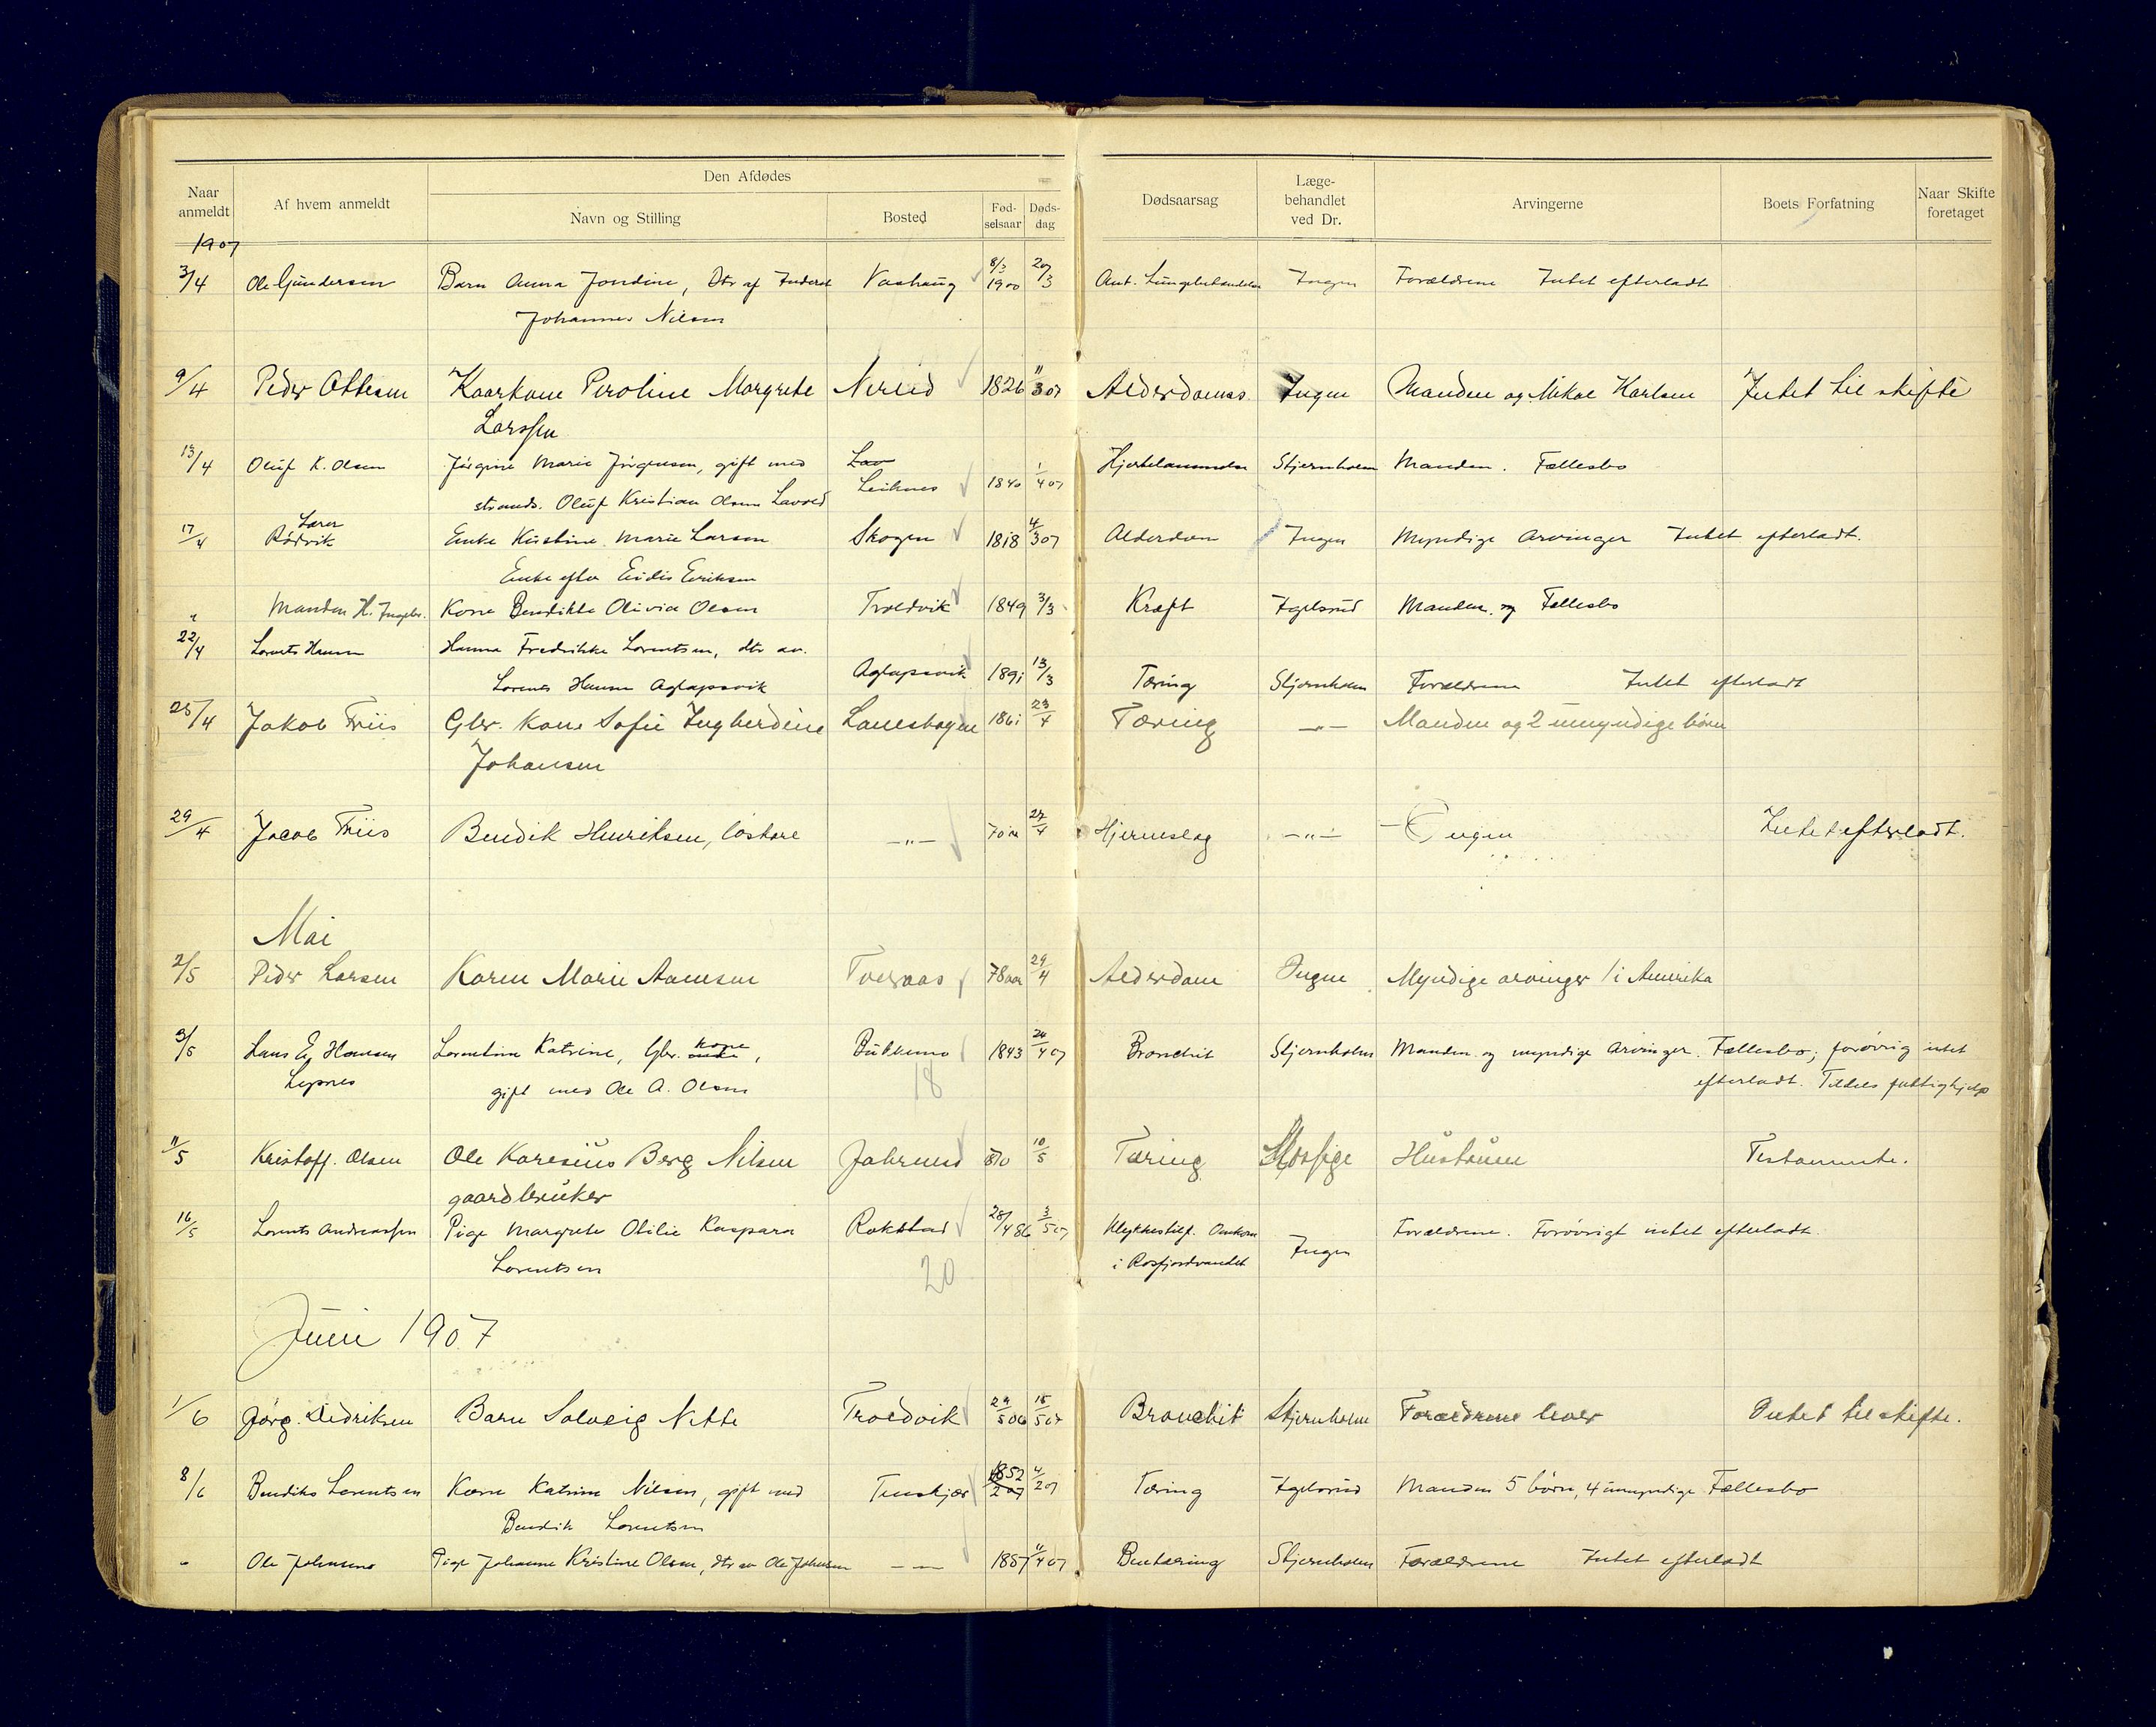 Naar anmeldt | Af hvem anmeldt | Den Afdødes | Dødsaarsag | Læge-behandlet ved Dr. | Arvingerne | Boets Forfatning | Naar Skifte foretaget
Navn og Stilling | Bosted | Fød-selsaar | Døds-dag
1907
3/4 | Ole Gundersen | Barn Anna Jondine, Dtr af | Vashaug | 8/3 1900 | 20/3 | Ingen | Forældrene Intet efterladt
Johannes Nilsen
9/4 | Peder Ottesen | Kaarkone Peroline Margrete | 1826 | 11/3 07 | Alderdoms | Ingen | Manden og Mikal Karlsen | Intet til skifte
Larssen
13/4 | Oluf K. Olsen | Jørgine Marie Jørgensen, gift med | Lav | Stjernholm | Manden. Fællesbo
strands. Oluf Kristian Olsen Lavred | Leiknes | 1840 | 1/4 07
Lærer
17/4 | Rödvik | Enke Kirstine Marie Larsen | Skogen | 1818 | 4/3 07 | Alderdom | Ingen | Myndige Arvinger Intet efterladt.
Enke efter Eriksen
" | Manden H. | Kone Bendikte Olivia Olsen | Troldvik | 1849 | 3/3 | Kræft | Manden og Fællesbo
22/4 | Lorents Hansen | Hanna Fredrikke Lorentsen, dtr av.
Lorents Hansen Aglapsvik | Aglapsvik | 1891 | 13/3 | Tæring | Stjernholm | Forældrene Intet efterladt
25/4 | Jakob Friis | Gbr. kone Sofie Ingberdine | Laneshagen | 1861 | 23/4 | Tæring | —"— | Manden og 2 umyndige børn
Johansen
29/4 | Jacob Friis | Bendik Henriksen, løskare | —"— | 70 år | 27/4 | Hjerneslag | —"— | Ingen | Intet efterladt.
Mai
2/5 | Peder Larsen | Karen Marie Aamsen | Tveraas | 78 aar | 29/4 | Alderdom | Ingen | Myndige arvinger 1 i Amerika
3/5 | Hans E. Hansen | Lorentine Katrine, Gbr. kone, | Bukkemo | 1843 | 20/4 07 | Bronchit | Stjernholm | Manden og myndige Arvinger. Fællesbo; forøvrig intet
Lysnes | gift med Ole A. Olsen | 18 | efterladt. Tildels fattighjelp
11/5 | Kristoff. Olsen | Ole Karesius Berg Nilsen | 870 | 10/5 | Tæring | Mossige | Hustruen | Testamente.
gaardbruker
16/5 | Lorents Andreassen | Pige Margrete Otilie Kaspara | Rokstad | 28/4 86 | 3/5 07 | Ulykkestilf. Omkom | Forældrene. Forøvrigt intet efterladt.
Lorentsen | 20 | i Rosfjordvandet | Ingen
Juni 1907
1/6 | Jørg. Dedriksen | Barn Solveig Nette | Troldvik | 29/5 06 | 18/5 07 | Bronchit | Stjernholm | Forældrene lever | Intet til skifte.
8/6 | Bendiks Lorentsen | Kone Katrine Nilsen, gift med | Tenskjær | 1852 | 4/2 07 | Tæring | Manden 5 børn, 4 umyndige Fællesbo
Bendik Lorentsen
" | Ole Johnsen | Pige Johanne Kristine Olsen, dtr av Ole Johnsen | —"— | 1887 | 11/4 07 | Bentæring | Stjernholm | Forældrene Intet efterladt